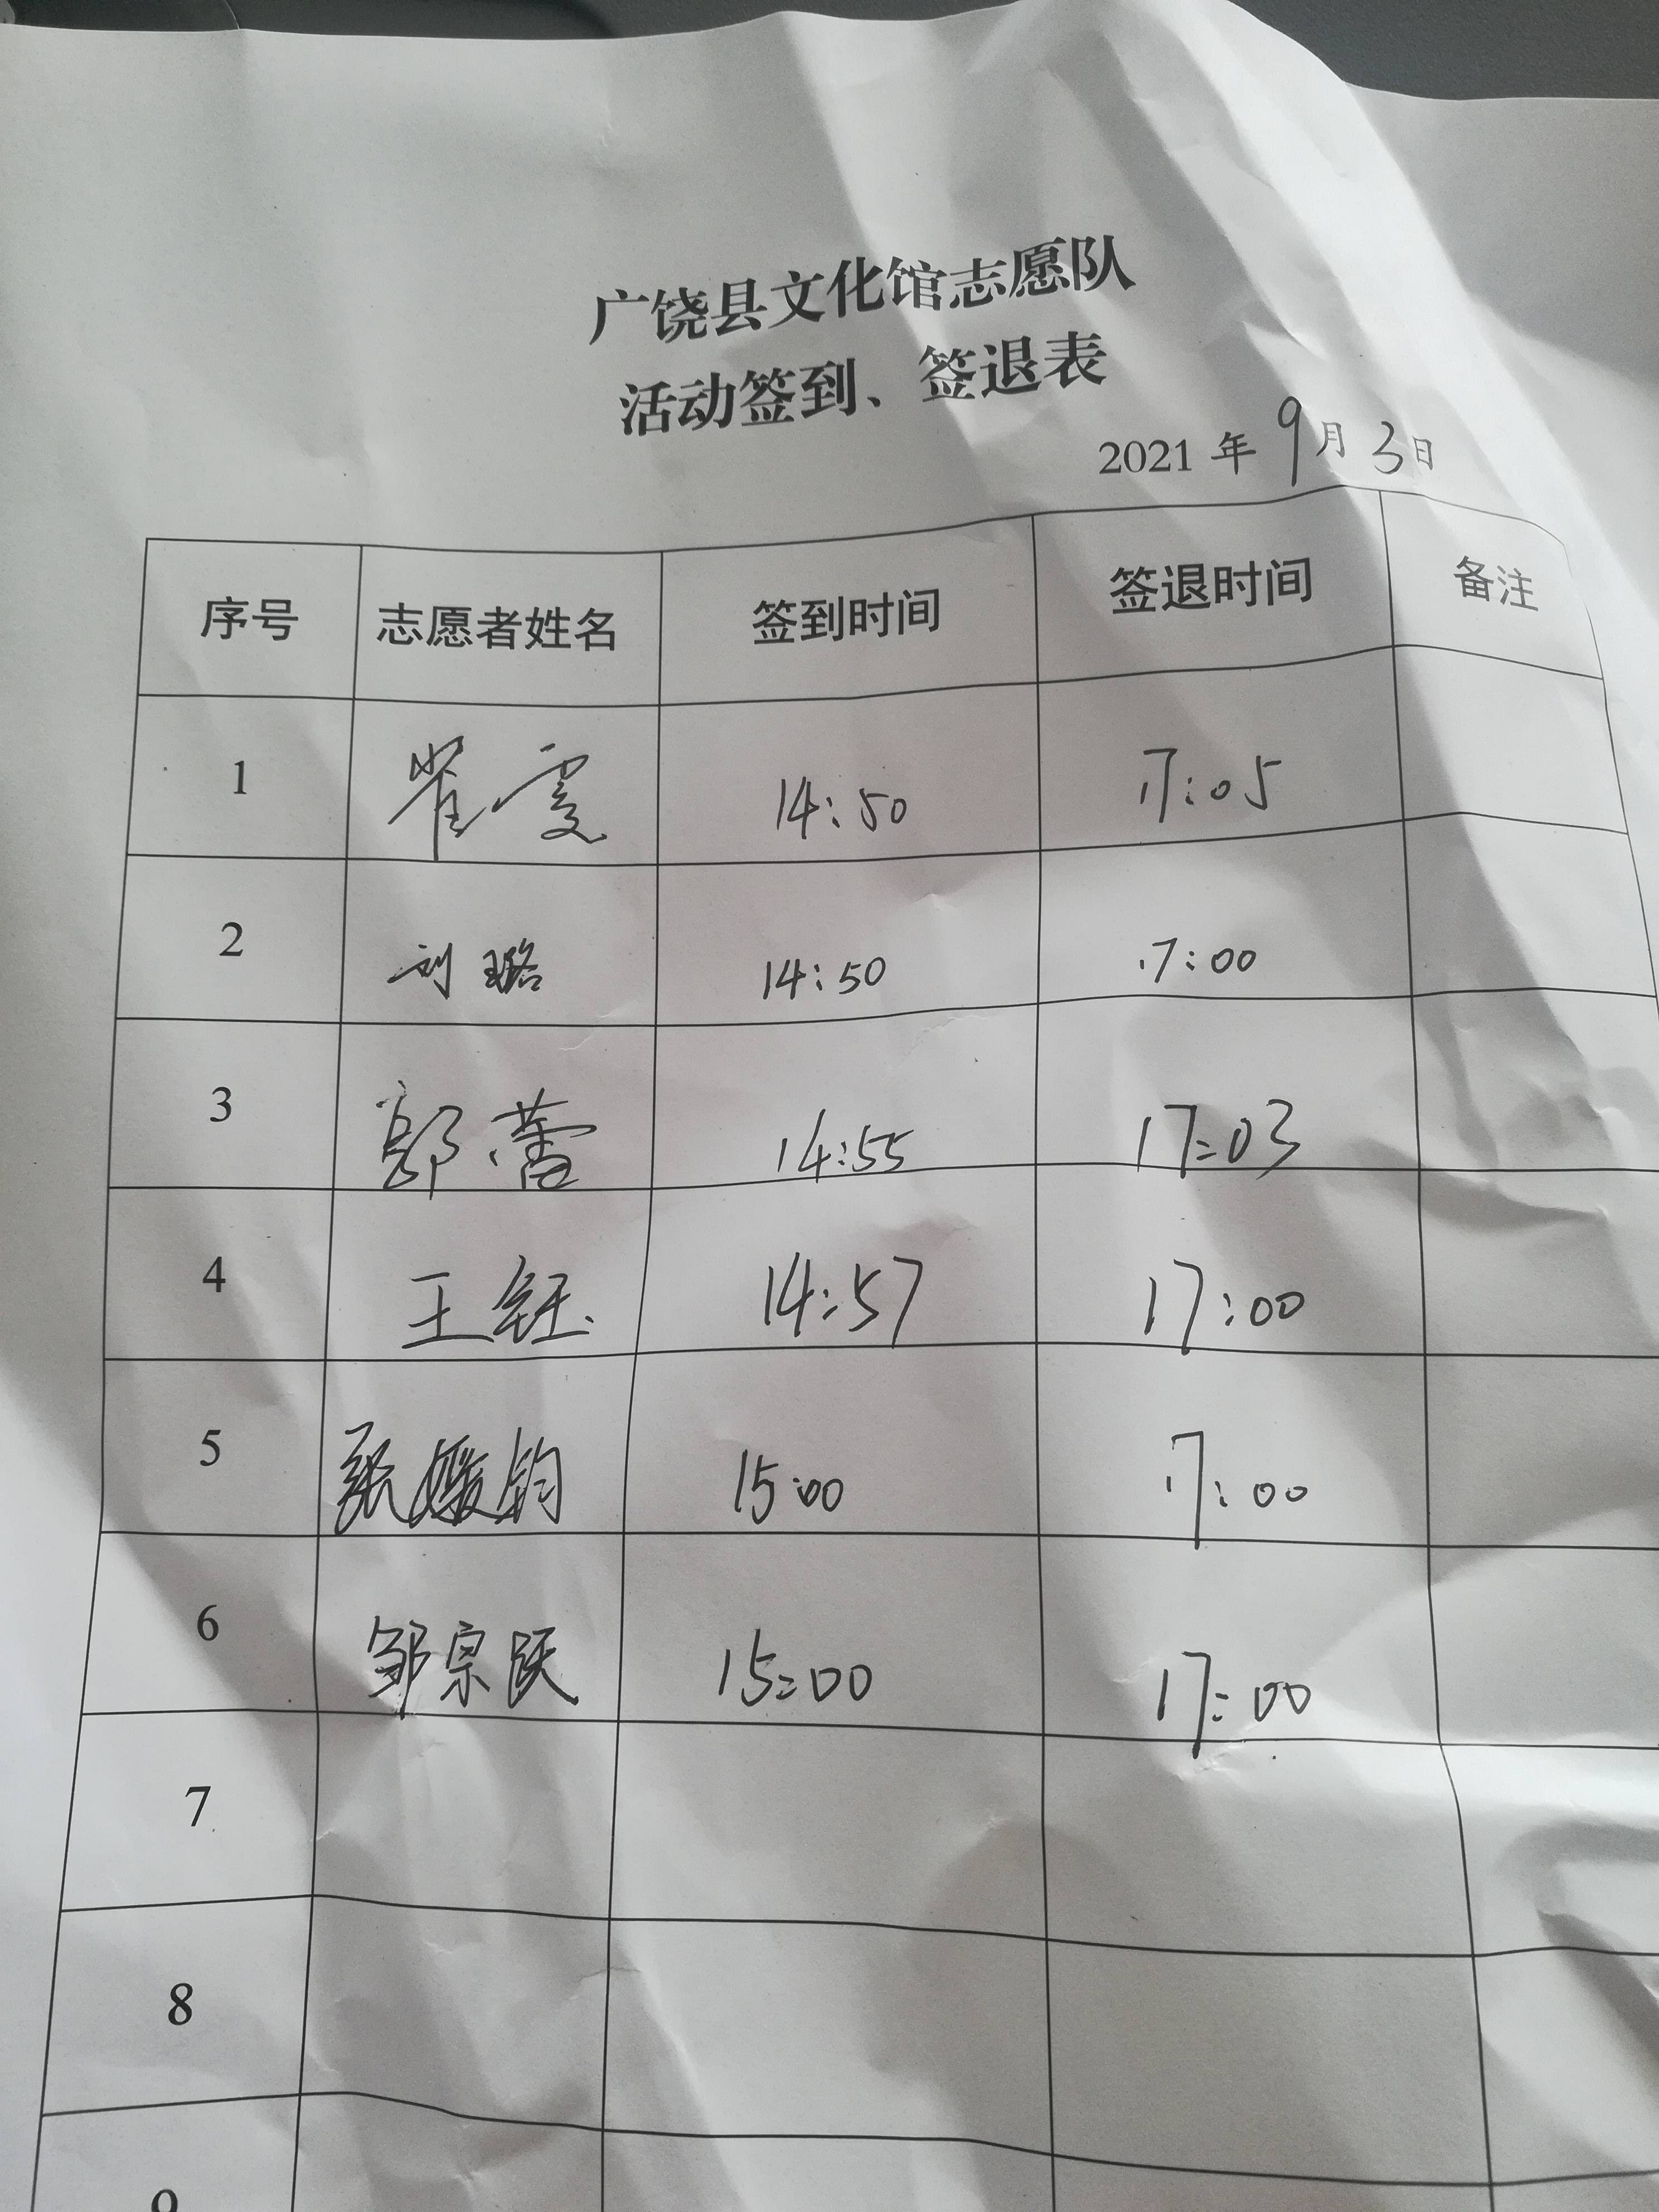 广饶县文化馆志愿队
活动签到、签退表
2021 年 9月 3日
序号 志愿者姓名 签到时间 签退时间 备注
1 崔雯 14:50 17:05
2 刘璐 14:50 17:00
3 郭蕾 14:55 17:03
4 王钰 14:57 17:00
5 张媛钧 15:00 17:00
6 邹宗跃 15:00 17:00
7
8
9